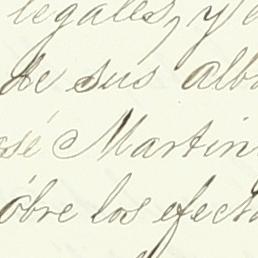 legales, y
de sus alb
osé Martin
obre los efect